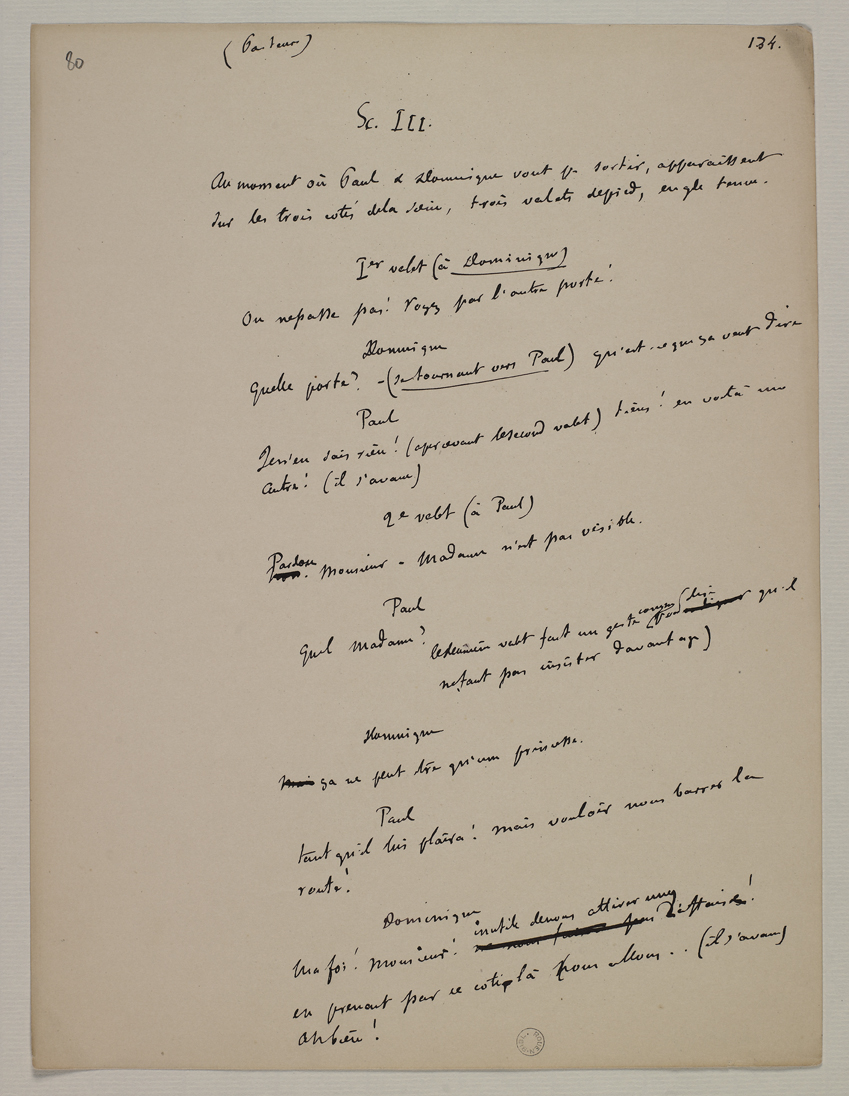 80
134.
Sc. III.
Au moment où Paul & Dominique vont pr sortir, apparaissent
Sur les trois cotés dela scèn, trois valets depied, en gde tenue.
Ier valet (à Dominique)
On nepasse pas! Voyez par l'autre porte!
Dominique
Quelle porte? - (se tournant vers Paul) qu'est-ce que ça veut dire
Paul
Jen'en sais rien! (apercevant lesecond valet) tiens! en voilà un
autre! (il s'avance)
2e valet (à Paul)
Pardon
Monsieur - Madame n'est pas visible.
Paul
Quel Madame?
valet fait un geste comme pr dire qu'il
nefaut pas insister davantage)
Dominique
Mais ça ne peut être qu'une princesse.
Paul
tant qu'il lui plaira! mais vouloir nous barrer la
route!
Dominique
inutile denous attirer une
Ma foi! Monsieur! affaire!
en prenant par ce cotélà nous allons.. (il s'avance)
Ah bien!